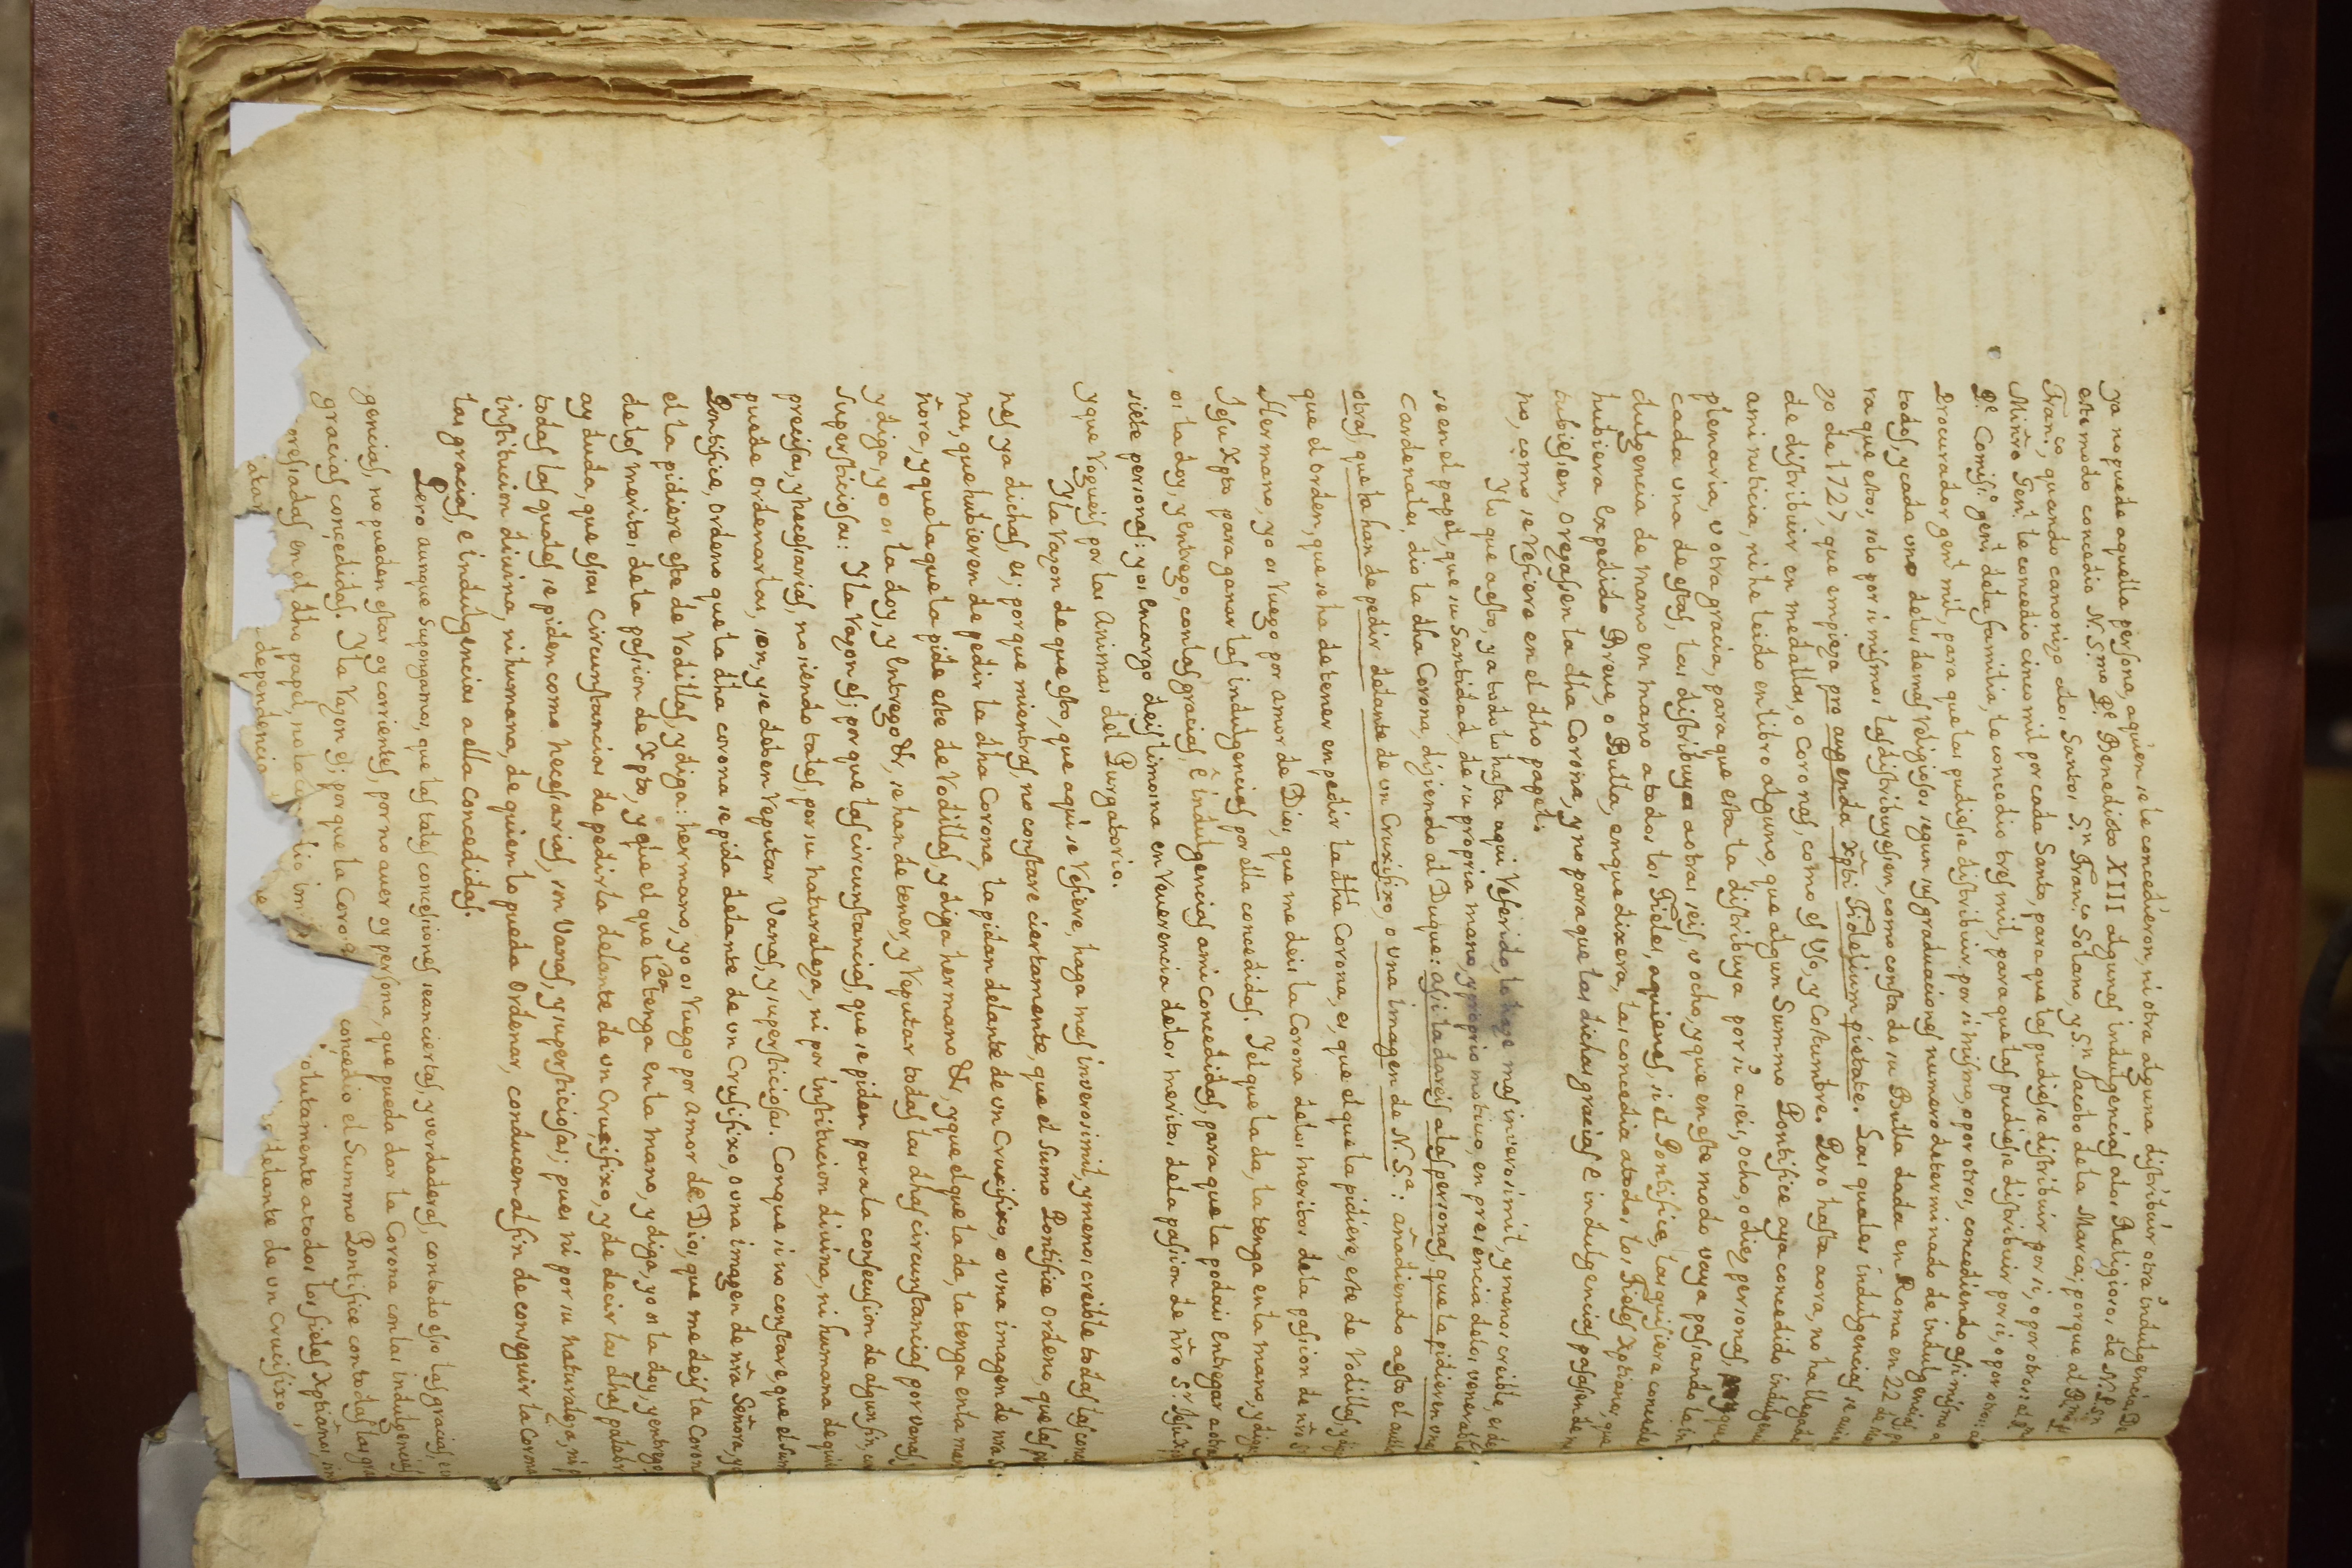 ya no puede aquella persona, aquien se le concedieron, ni otra alguna distribuir otra indulgencia. De
este modo concedio N. S.mo P.e Benedicto XIII algunas indulgencias alos Religiosos de N. P. Sn
Fran.co, quando canonizo alos Santos S.n Fran.co Solano, y S.n Jacobo dela Marca; porque al R.mo P.
Minro Gen.l le concedio cinco mil por cada Santo, para que las pudiese distribuir por si, o por otros: al R.
P.e Comis.o gen.l dela familia, le concedio tres mil, para que las pudiese distribuir por si, o por otros: a
Procurador gen.l mil, para que las pudiese distribuir por si mismo, o por otros, concediendo asi mismo a
todos, y cada uno delos demas Religiosos segun sus graduaciones numero determinado de indulgencias, p
ra que estos, solo por si mismos las distribuyesen, como consta de su Bulla dada en Roma en 22 de Ma
zo de 1727, que empieza pro augenda Xpti Fidelium pietate. Las quales indulgencias se avia
de distribuir en medallas, o coronas, como es Vso, y Costumbre. Pero hasta aora, no ha llegado
ami noticia, ni he leido en libro alguno, que algun Summo Pontifice aya concedido indulgen
plenaria, v otra gracia, para que esta la distribuya por si a seis, ocho, o diez personas, y que
cada una de estas, las distribuya a otras seis, v ocho, y que en este modo vaya pasando la in
dulgencia de mano en mano a todos los Fieles, aquienes, si el Pontifice, las quisiera concede
hubiera Expedido Breve, o Bulla, enque dixera, las concedia atodos los Fieles Xptianos, que
tubiesen, o rezasen la dha Corona, y no para que las dichas gracias e indulgencias pasasen de m
no, como se refiere en el dho papel.
Y lo que a esto, ya todo lo hasta aqui Referido, lo haze mas inverosimil, y menos creible, es de
se en el papel, que su Santidad, de su propria mano, y proprio motivo, en presencia delos venerable
Cardenales, dio la dha Corona, diziendo al Duque: asi la dareis alas personas, que la pidieren una
otras, que la han de pedir delante de un Crusifixo, o una imagen de N. S.a: añadiendo a esto el auth
que el orden, que se ha de tener en pedir la dha Corona, es, que el que la pidiere, este de Rodillas, y diga
Hermano, yo os Ruego por amor de Dios, que me deis la Corona delos meritos dela pasion de nro S
Jesu Xpto para ganar las indulgencias por ella concedidas. Y el que la da, la tenga en la mano, y diga
os la doy, y Entrego, con las gracias, e indulgencias ami concedidas, para que la podais Entregar a otra
siete personas: y os Encargo deis limosna en Reverencia delos meritos dela pasion de nro S.r Jesu Xp
y que Rogueis por las Animas del Purgatorio.
Y la Razon de que esto, que aqui se Refiere, haga mas inverosimil, y menos creible todas las conc
nes ya dichas, es; porque mientras, no constare ciertamente, que el Sumo Pontifice Ordeno, que las p
nas, que hubieren de pedir la dha Corona, la pidan delante de un Crucifixo, o una imagen de nra S
ñora, y que la que la pide este de Rodillas, y diga hermano &, y que el que la da, la tenga en la man
y diga, yo os la doy, y Entrego &, se han de tener, y Reputar todas las dhas circunstancias por vanas,
Supersticiosas: Y la Razon es; porque las circunstancias, que se piden para la consecusion de algun fin, co
precisas, y necesarias, no siendo tales, por su naturaleza, ni por institucion divina, ni humana de quie
puede ordenarlas, son, y se deben Reputar Vanas, y supersticiosas. Conque si no constare, que el Sum
Pontifice, Ordeno que la dha corona se pida delante de un Crusifixo, o una imagen de nra Señora, y
el la pidiere este de Rodillas, y diga: hermano, yo os Ruego por amor de Dios, que me deis la Coron
delos meritos dela pasion de Xpto, y que el que la da tenga en la mano, y diga, yo os la doy y entrego
ay duda, que esas Circunstancias de pedirla delante de un Crucifixo, y de decir las dhas palabr
todas las quales se piden como necesarias, son Vanas, y supersticiosas; pues ni por su naturaleza, ni p
institucion divina, ni humana, de quien lo pueda Ordenar, conducen al fin de conseguir la Corona
las gracias, e indulgencias a ella concedidas.
Pero aunque Supongamos, que las tales concesiones sean ciertas, y verdaderas, con todo eso las gracias, e i
gencias, no pueden estar oy corrientes, por no aver oy persona, que pueda dar la Corona con las indulgencias
gracias concedidas. Y la Razon es; porque la Corona concedio el Summo Pontifice con todas las gra
oresadas en el dho papel, no la olutamente a todos los fieles Xptianos, sin
dependencia delante de un Crucifixo,